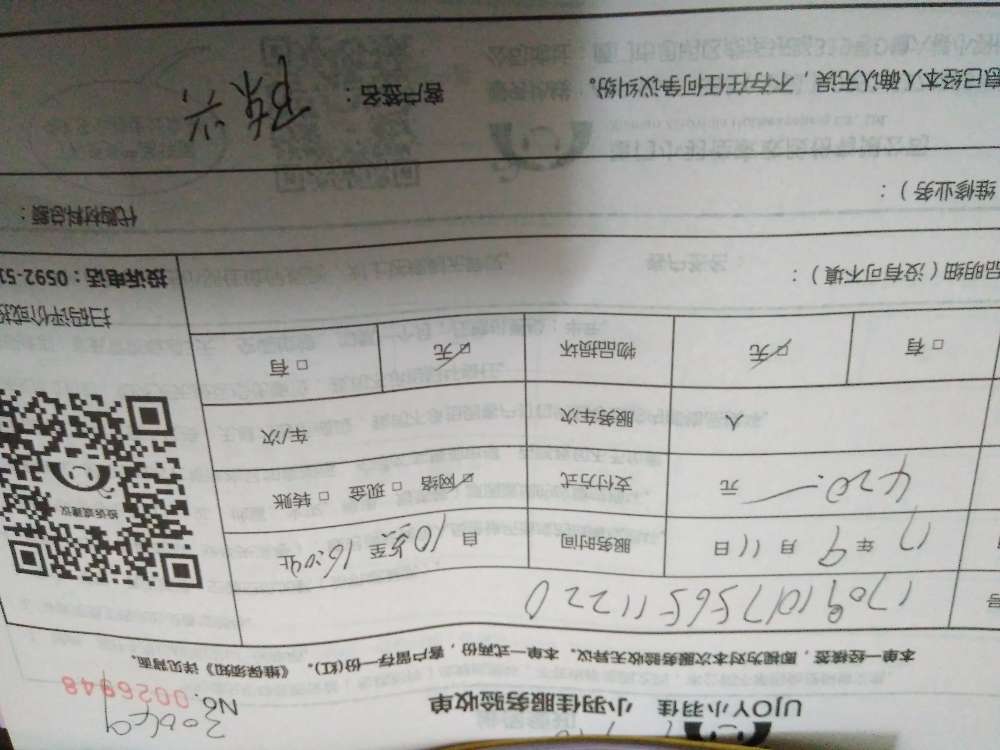 30049
UJOY小羽佳 小羽佳服务验收单
No. 0026948
本单一经核签，即视为对本次服务验收无异议。本单一式两份，客户留存一份(红)。《维保须知》详见背面。
号 170910756511220
17 年 9 月 11 日 服务时间 自 10 至 16
420. 元 支付方式 ☑网络 □现金 □转账
人 服务车次 车/次
□有 ☑无 物品损坏 ☑无 □有
投诉或建议
扫码评价或投
投诉电话：0592-51
品明细（没有可不填）：
维修业务）： 代购材料总额：
已经本人确认无误，不存在任何争议纠纷。 客户签名：